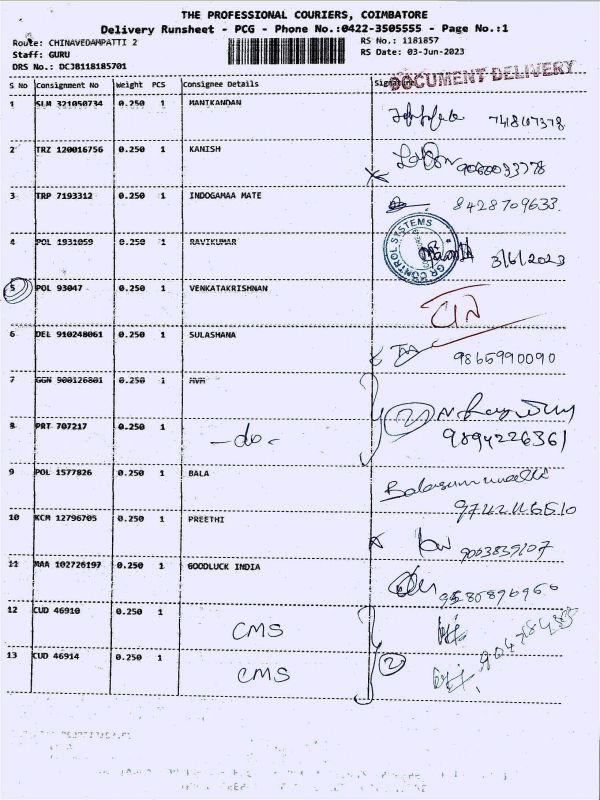 THE PROFESSIONAL COURIERS, COIMBATORE
Delivery Runsheet - PCG - Phone No.:0422-3505555 - Page No.:1
Route: CHINAVEDAMPATTI 2 RS No.: 1181857
Staff: GURU RS Date: 03-Jun-2023
DRS No.: DCJB118185701
DOCUMENT DELIVERY
S No Consignment No Weight PCS Consignee Details Signature
1 SLM 321050734 0.250 1 MANIKANDAN
2 TRZ 120016756 0.250 1 KANISH
3 TRP 7193312 0.250 1 INDOGAMAA MATE 8428709633
GR CONTROL SYSTEMS
4 POL 1931059 0.250 1 RAVIKUMAR 3/6/2023
5 POL 93047 0.250 1 VENKATAKRISHNAN
6 DEL 910248061 0.250 1 SULASHANA 9865990090
7 GGN 900126801 0.250 1 MVM
8 PRT 707217 0.250 1 -do- 2 9894226361
9 POL 1577826 0.250 1 BALA
10 KCM 12796705 0.250 1 PREETHI 9003839107
11 MAA 102726197 0.250 1 GOODLUCK INDIA
12 CUD 46910 0.250 1 CMS
13 CUD 46914 0.250 1 CMS 2